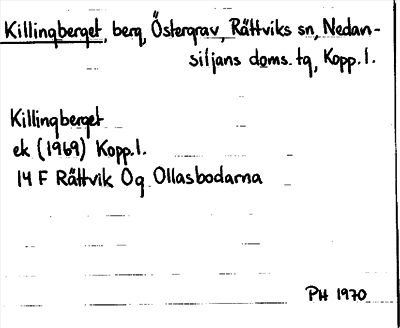 Killingberget, berg, Östergrav, Rättviks sn, Nedan-
siljans doms. tg, Kopp. l.
Killingberget
ek (1969) Kopp. l.
14 F Rättvik Og Ollasbodarna
PH 1970